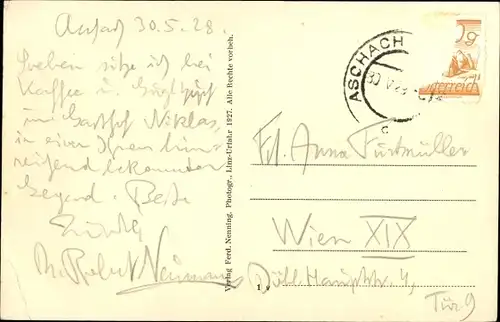 30.5.28.
Soeben sitze ich bei
Kaffee u. Guglhupf
im Gasthof Niklas,
in einer Ihnen hin-
reichend bekannten
Gegend. Beste
Grüße
Dr. Robert Neumann
Verlag Ferd. Nenning, Photogr., Linz-Urfahr 1927. Alle Rechte vorbeh.
ASCHACH
Österreich
Frl. Anna Furtmüller
Wien XIX
Döbl. Hauptstr. 4,
Tür 9